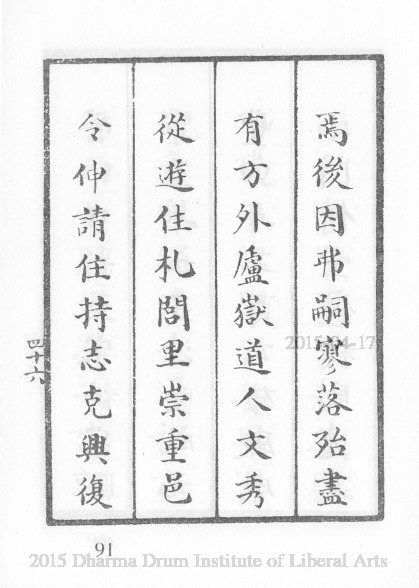 焉後因弗嗣寥落殆盡
有方外廬嶽道人文秀
從遊住札閭里崇重邑
令仲請住持志克興復
四十六
91
2015-04-17
2015 Dharma Drum Institute of Liberal Arts